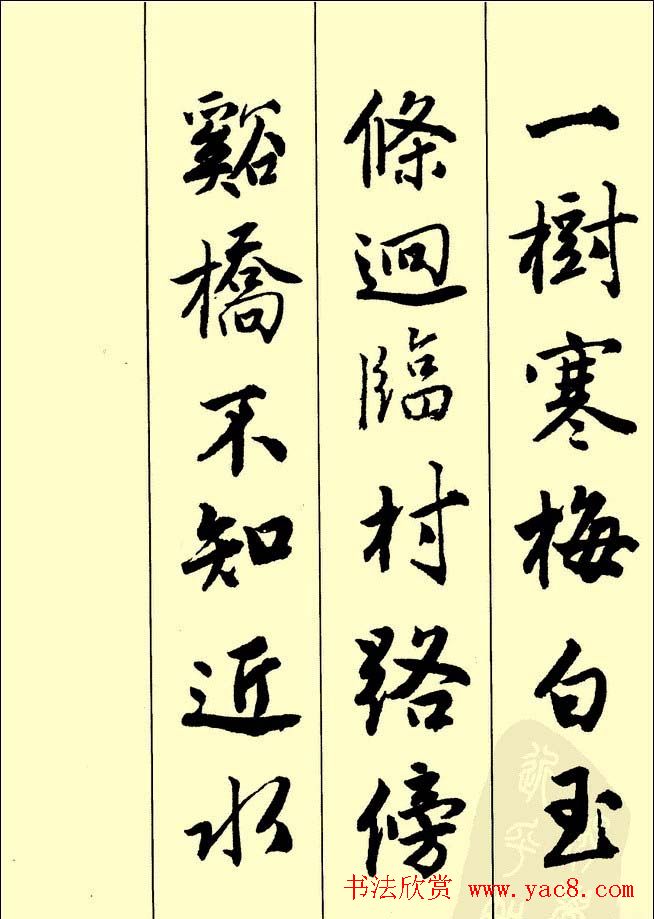 一樹寒梅白玉
條迥臨村路傍
谿橋不知近水
书法欣赏 www.yac8.com